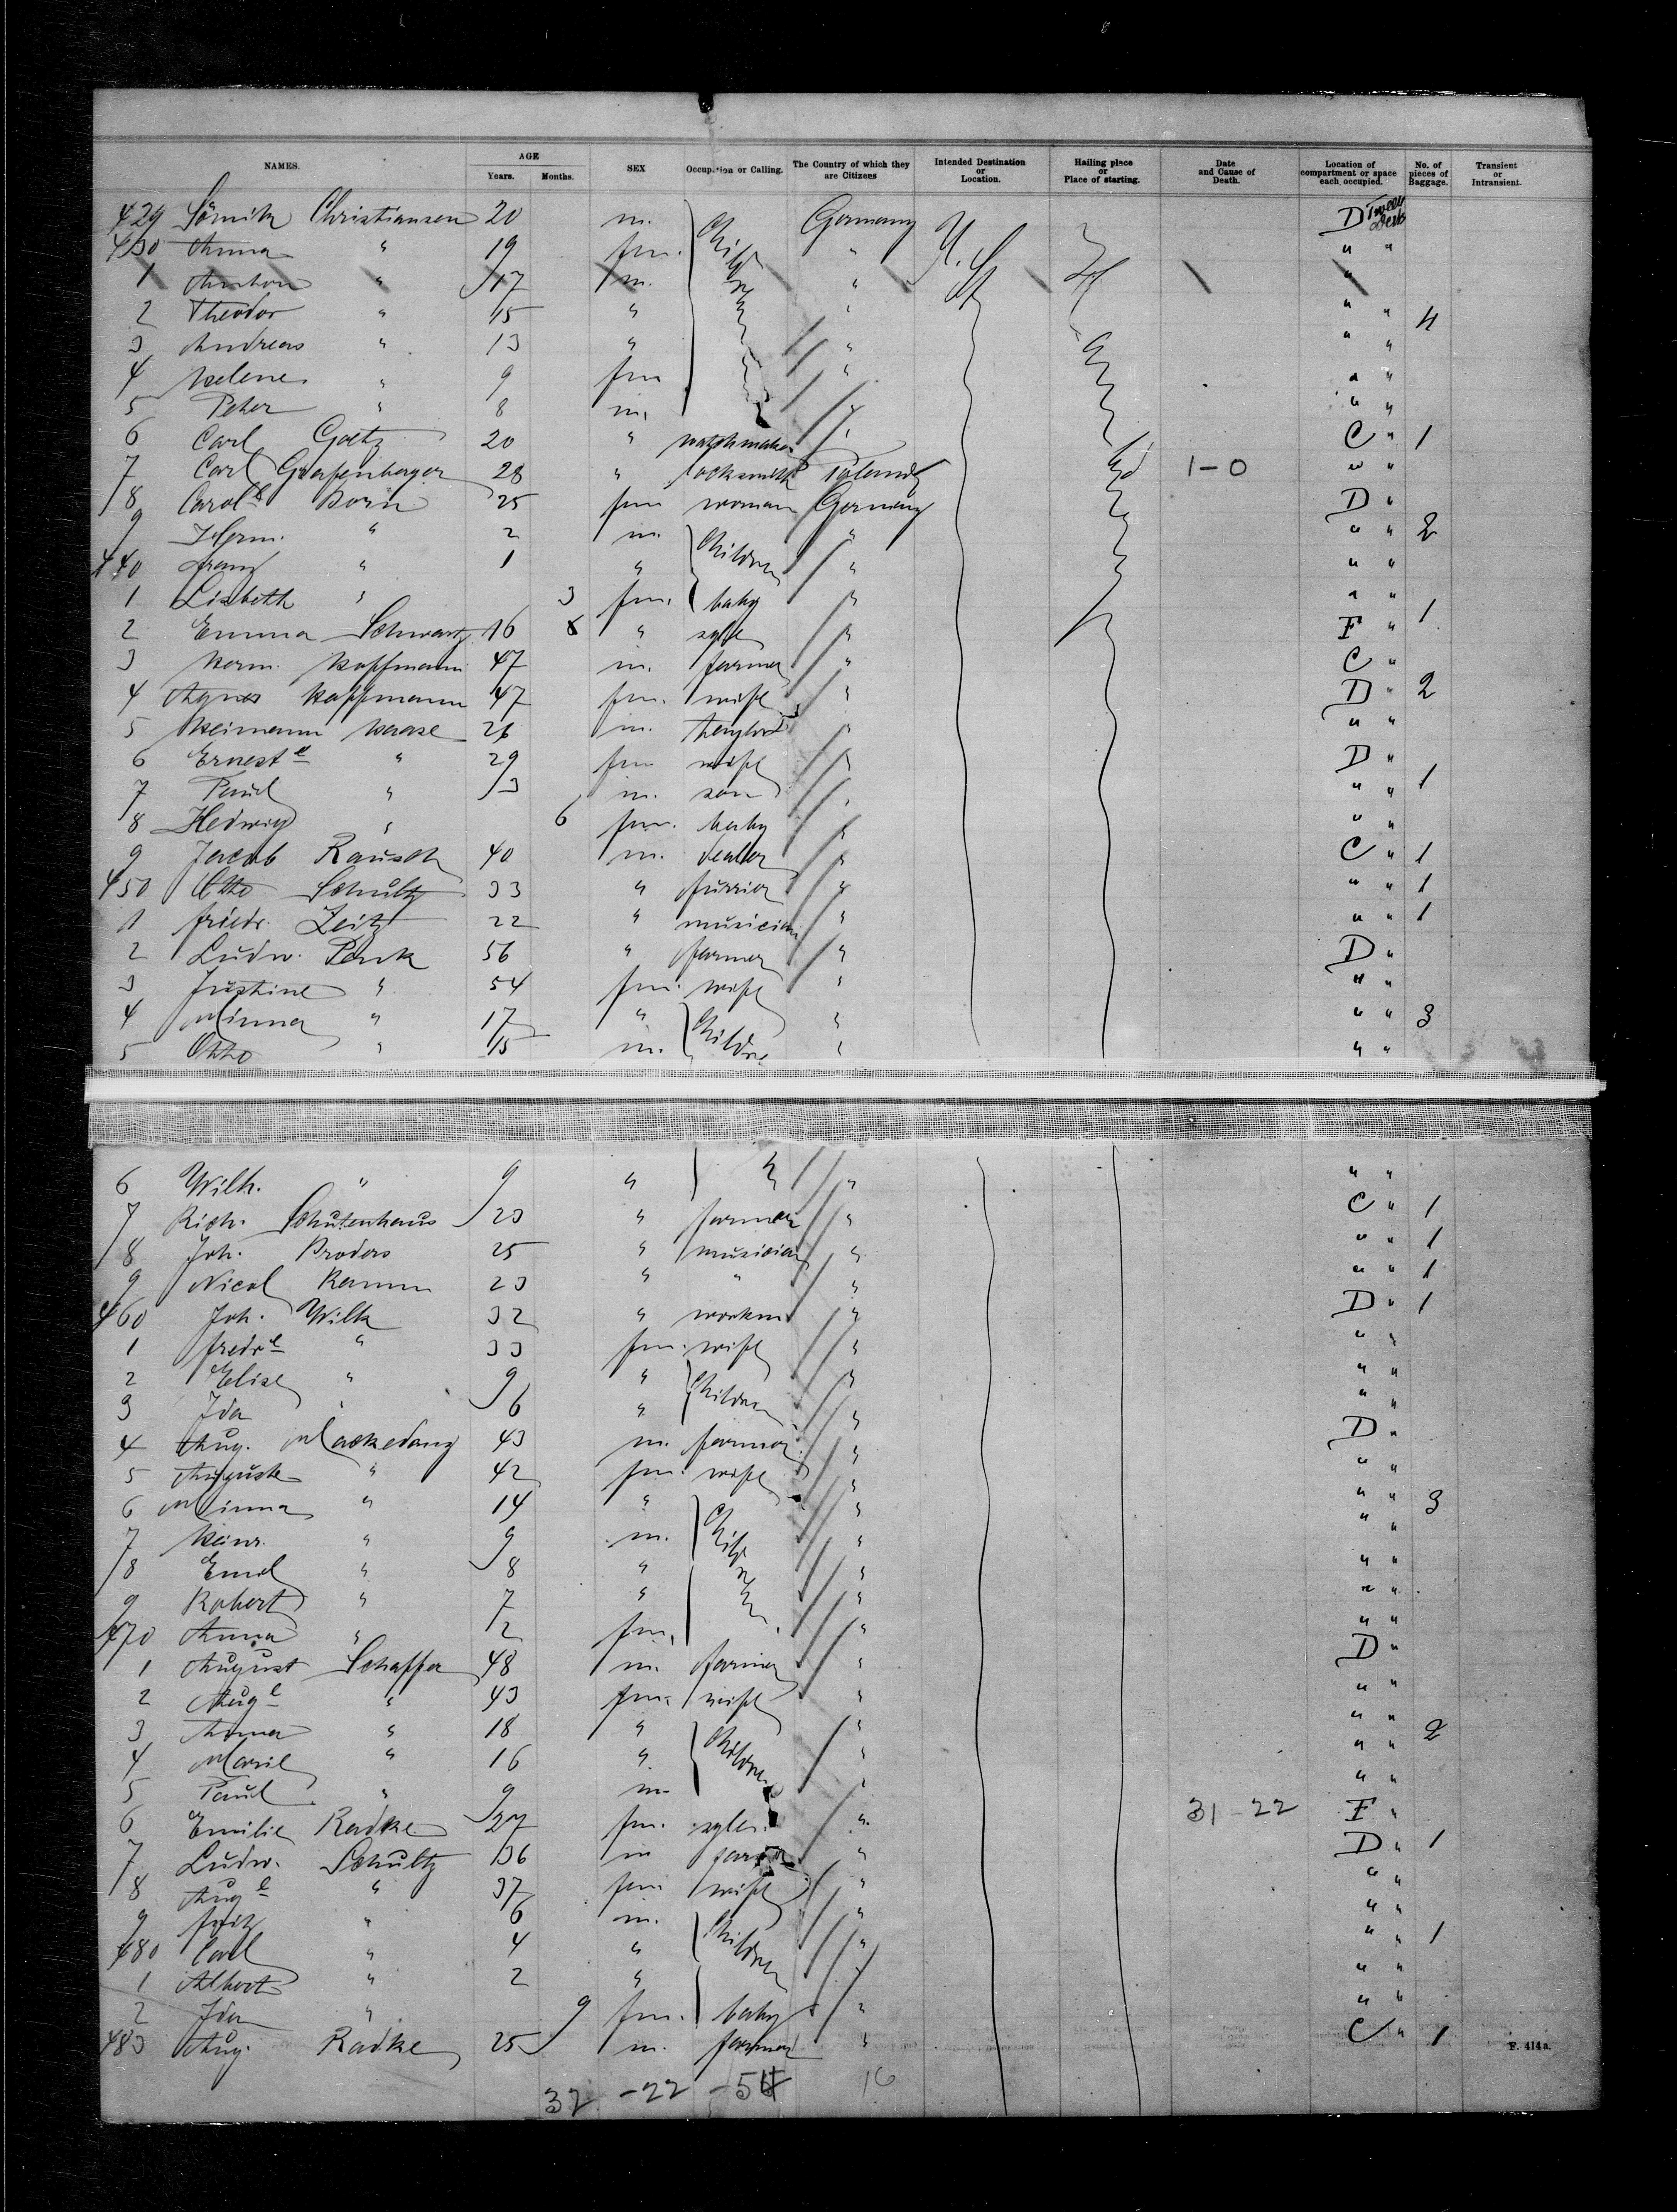 NAMES. AGE Years. Months. SEX Occupation or Calling. The Country of which they are Citizens Intended Destination or Location. Hailing place or Place of starting. Date and Cause of Death. Location of compartment or space each occupied. No. of pieces of Baggage. Transient or Intransient.
429 Christiansen 20 m. Germany U. St. D Tween Deck
430 Anna " 19 fm. " " "
1 " 17 m. " "
2 Theodor " 15 " " " " 4
3 Andreas " 13 " " " "
4 Helene " 9 fm " " "
5 Peter " 8 m. " " "
6 Carl Goetz 20 " watchmaker " C " 1
7 Carl Grafenberger 28 " locksmith 1-0 " "
8 Carole Born 25 fm woman Germany D "
9 Herm. " 2 m. Children " " " 2
440 Franz " 1 " " " "
1 Lisbeth " 3 fm. baby " " "
2 Emma Schwartz 16 " " F " 1
3 Herm. Hoffmann 47 m. farmer " C "
4 Agnes Hoffmann 47 fm. wife " D " 2
5 Heimann Haase 26 m. " " "
6 Erneste " 29 fm wife " D "
7 Paul " 3 m. son " " " 1
8 Hedwig " 6 fm. baby " " "
9 Jacob Rausch 40 m. dealer " C " 1
450 Otto Schultz 33 " furrier " " " 1
1 Friedr. Zeitz 22 " musician " " " 1
2 Ludw. Penk 56 " farmer " D "
3 Justine " 54 fm. wife " " "
4 Minna " 17 " Children " " " 3
5 Otto " 15 m. " " "
6 Wilh. " 9 " " " " "
7 Rich. Schutenhaus 23 " farmer " C " 1
8 Joh. Broders 25 " musician " " " 1
9 Nicol Hamm 23 " " " " " 1
460 Joh. Wilk 32 " workm " D " 1
1 Fredre " 33 fm. wife " " "
2 Elise " 9 " Children " " "
3 Ida " 6 " " " "
4 Aug. Mackedanz 43 m. farmer " D "
5 Auguste " 42 fm. wife " " "
6 Minna " 14 " Children " " " 3
7 Heinr. " 9 m. " " "
8 Emil " 8 " " " "
9 Robert " 7 " " " "
470 Anna " 2 fm. " " "
1 August Schaffer 48 m. farmer " D "
2 Auge " 43 fm. wife " " "
3 Anna " 18 " Children " " " 2
4 Marie " 16 " " " "
5 Paul " 9 m. " " "
6 Emilie Radke 27 fm. " 31-22 F "
7 Ludw. Schultz 36 m farmer " D " 1
8 Auge " 37 fm wife " " "
9 Fritz " 6 m. Children " " "
480 Carl " 4 " " " " 1
1 Albert " 2 " " "
2 Ida " 9 fm. baby " " "
483 Aug. Radke 25 m. farmer " C " 1
F. 414 a.
32 -22 -54 16